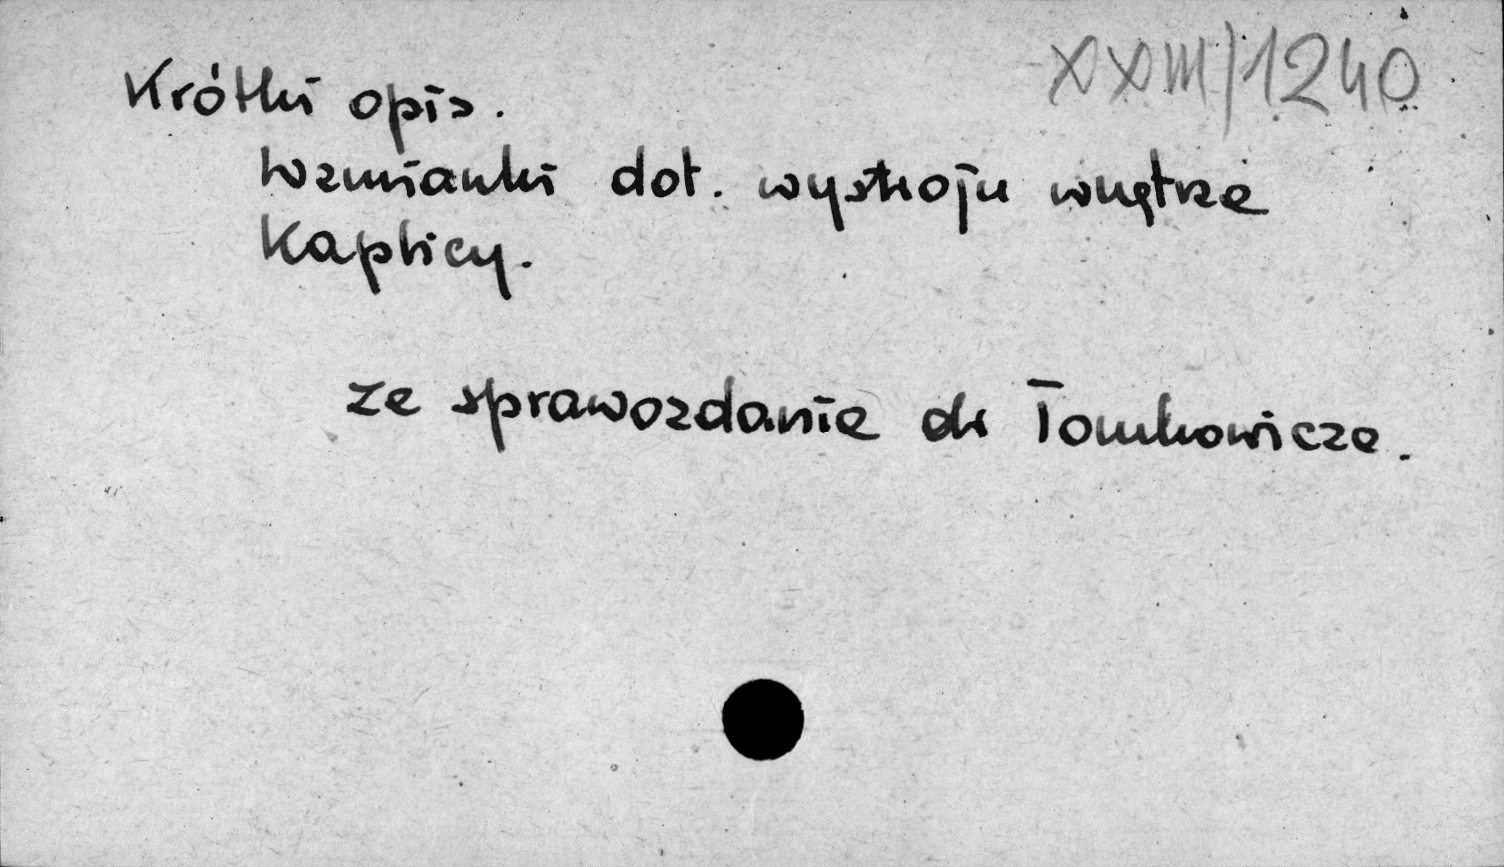 XXIII/1240
Krótki opis.
Wzmianki dot. wystroju wnętrza
Kaplicy.
ze sprawozdania dr Tomkowicza.